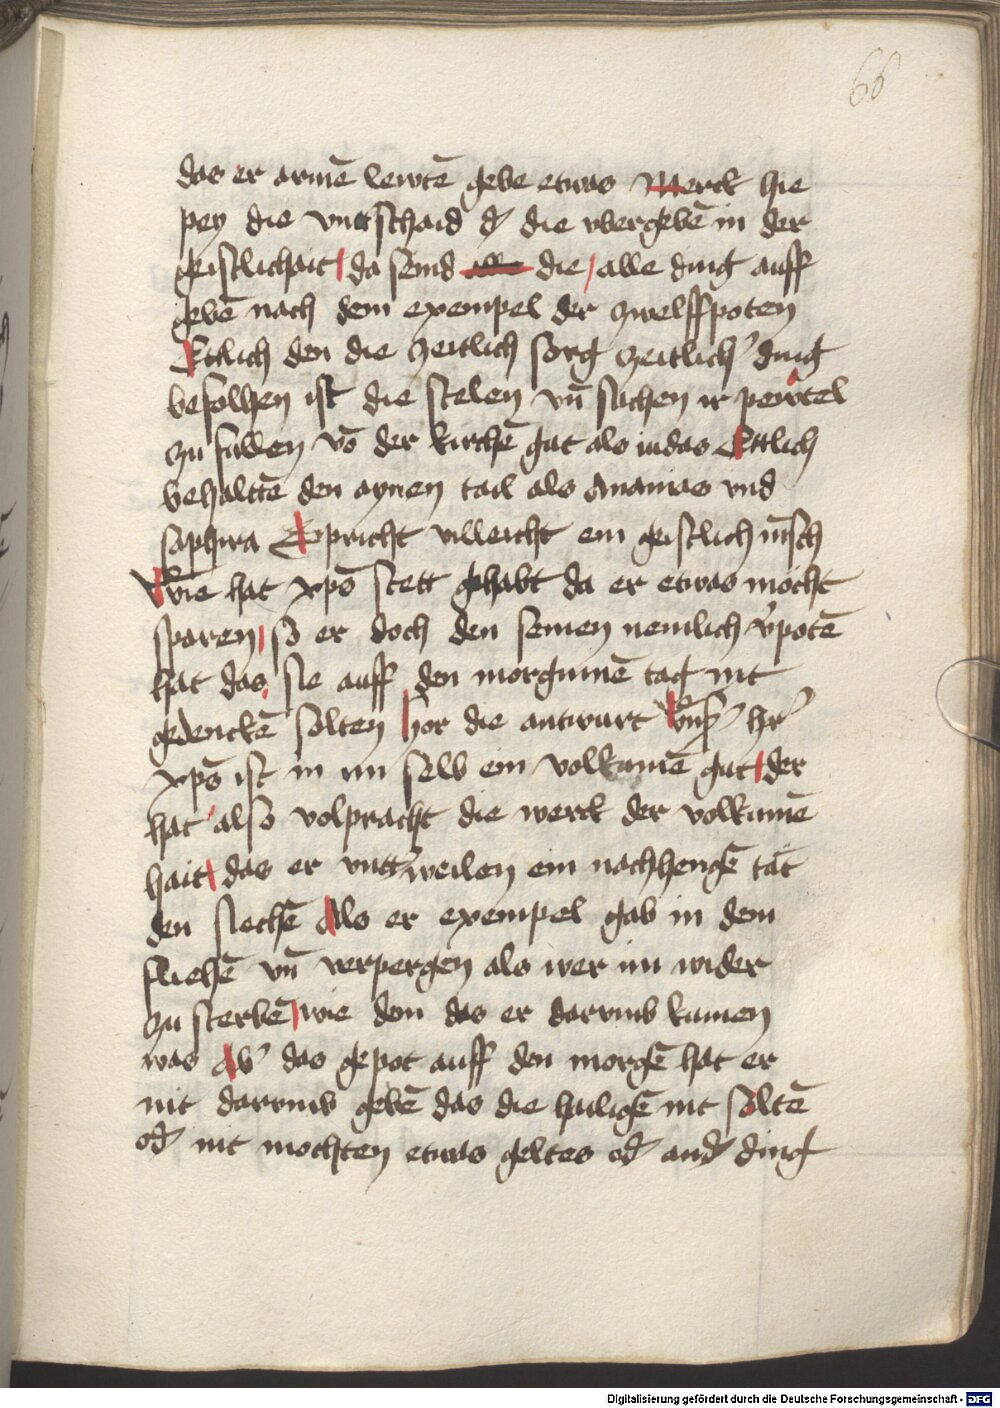 66
das er armē lewtē gebe etwas Merck hie
pey die vnttschaid d' die vbergebē in der
geistlichait da seind alle die alle ding auff
gebē nach dem exempel der zwelffpoten
Ettlich den die zeitlich sorg zeitlich' ding
befolhen ist die stelen vn̄ suchen ir pewtel
zu fullen vō der kirchē gut als iudas Ettlich
behaltē den aynen tail als Ananias vnd
saphira Spricht villeicht ein geistlich mēsch
Wie hat xpō stett gehabt da er etwas möcht
sparen so er doch den seinen nemlich v'potē
hat das sie auff den morgnunē tag nit
gedenckē solten hor die antwurt Vns' hr'
xpō ist in im selb ein volkumē gut der
hat also volpracht die werck der volkumē
hait das er vntt'weilen ein nachhengē tät
den siechē Als er exempel gab in dem
fliehē vn̄ verpergen als wer im wider
zu sterbē wie dem das er darvmb kumen
was Ab' das gepot auff den morgē hat er
nit darvmb gebē das die heiligē nit soltē
od' nit mochten etwas geltes od' and' ding
Digitalisierung gefördert durch die Deutsche Forschungsgemeinschaft - DFG